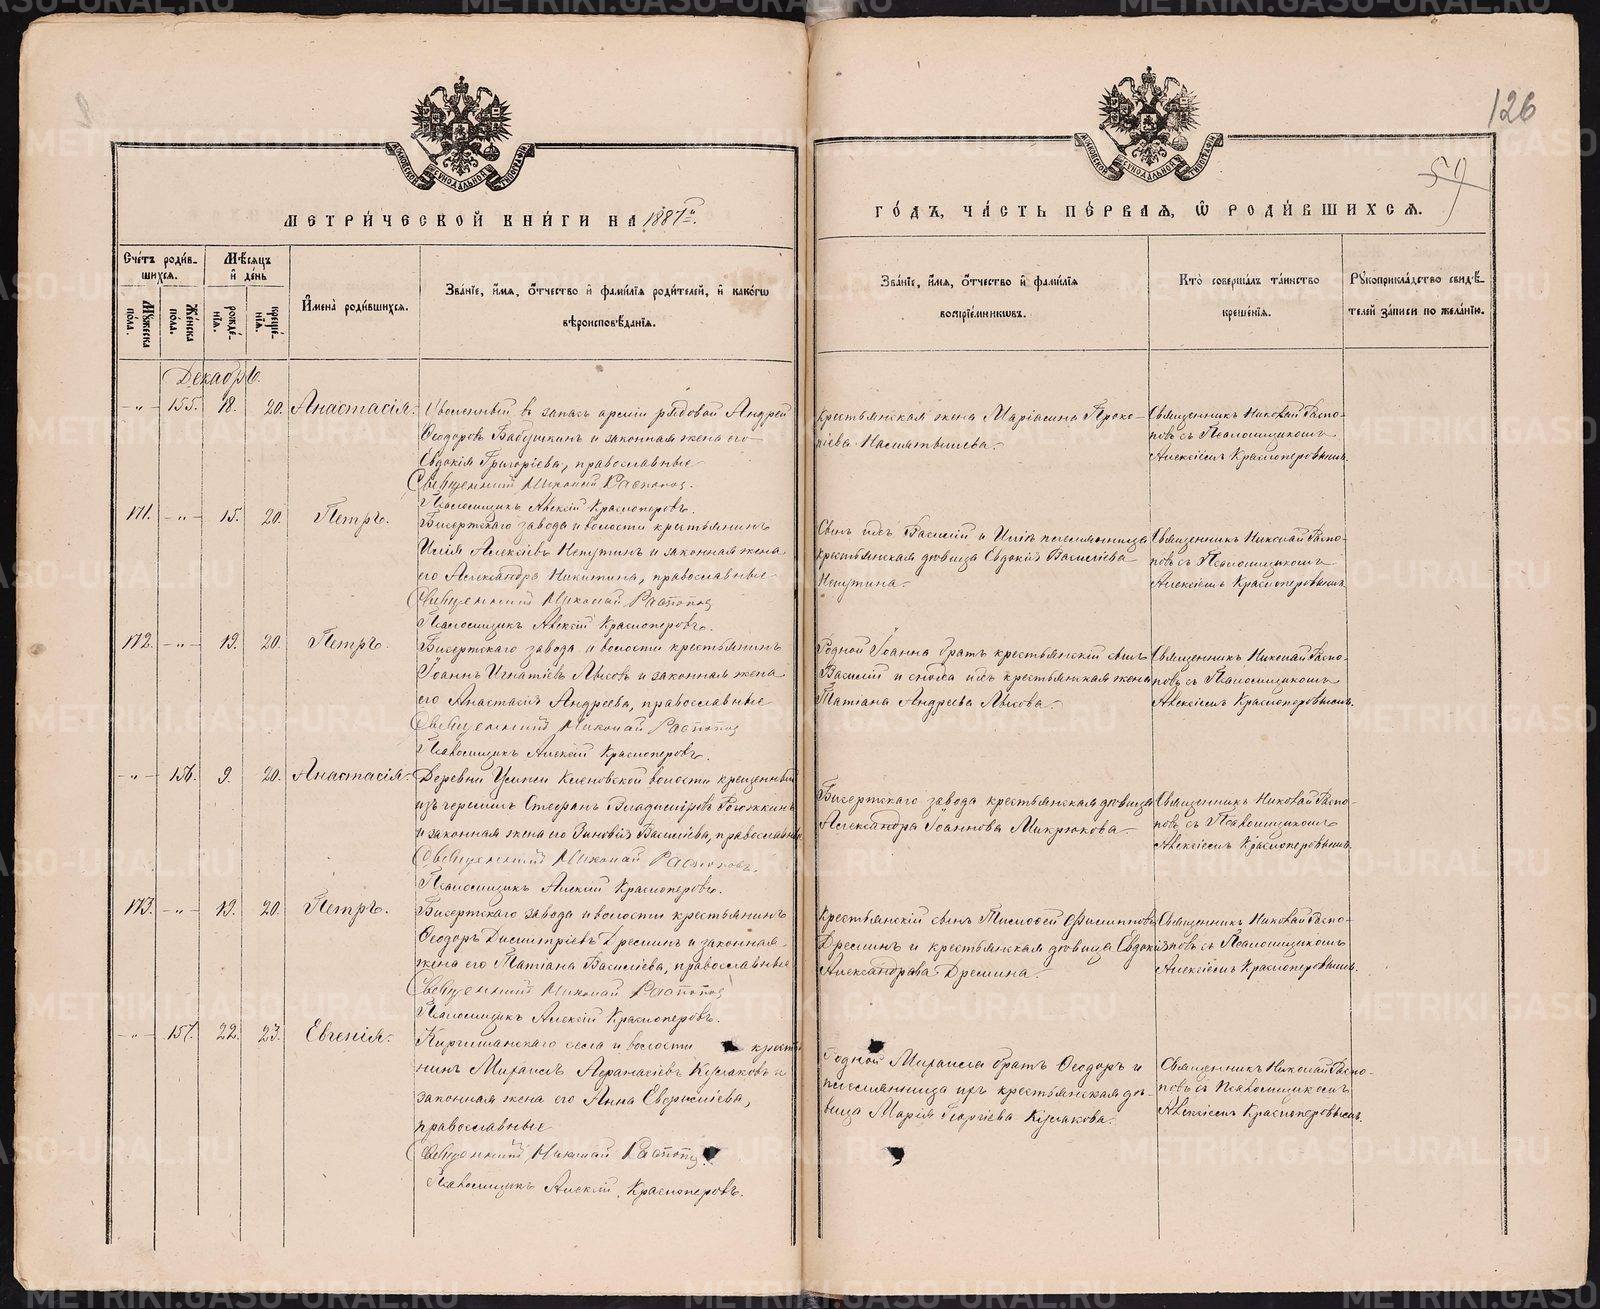 126
59
МЕТРИ́ЧЕСКОЙ КНИ́ГИ НА 1887й
ГО́ДЪ, ЧА́СТЬ ПЕ́РВАЯ, Ѿ РОДИ́ВШИХСЯ.
Сче́тъ роди́в-
шихся.
Мѣ́сяцъ
и де́нь
Му́жеска
по́ла.
Же́нска
по́ла.
рожде́-
нїя.
креще́-
нїя.
И́мена роди́вшихся.
Зва́нїе, и́мя, о́тчество и фами́лїя роди́телей, и како́гѡ
вѣроисповѣ́данїя.
Зва́нїе, и́мя, о́тчество и фами́лїя
воспрїе́мникѡвъ.
Кто̀ соверша́лъ та́инство
креще́нїя.
Рꙋкоприкла́дство свидѣ́-
телей за́писи по жела́нїю.
Декабрь.
-"- 155. 18. 20. Анастасія.
Уволенный въ запасъ арміи рядовой Андрей
Ѳеодоровъ Бабушкинъ и законная жена его
Евдокія Григоріева, православные
Священникъ Николай Распоповъ.
Псаломщикъ Алексій Красноперовъ.
Крестьянская жена Маріамна Проко-
піева
Священникъ Николай Распо-
повъ съ Псаломщикомъ
Алексіемъ Красноперовымъ.
171. -"- 15. 20. Петръ.
Бисертскаго завода и волости крестьянинъ
Илія Алексіевъ Непутинъ и законная жена
его Александра Никитина, православные
Священникъ Николай Распоповъ
Псаломщикъ Алексій Красноперовъ.
Сынъ ихъ Василій и Иліи племянница
крестьянская дѣвица Евдокія Василіева
Непутина.
Священникъ Николай Распо-
повъ съ Псаломщикомъ
Алексіемъ Красноперовымъ
172. -"- 19. 20. Петръ.
Бисертскаго завода и волости крестьянинъ
Іоаннъ Игнатіевъ Лысовъ и законная жена
его Анастасія Андреева, православные
Священникъ Николай Распоповъ
Псаломщикъ Алексій Красноперовъ.
Родной Іоанна братъ крестьянскій сынъ
Василій и сноха ихъ крестьянская жена
Татіана Андреева Лысова.
Священникъ Николай Распо-
повъ съ Псаломщикомъ
Алексіемъ Красноперовымъ.
-"- 156. 9. 20. Анастасія.
Деревни Кленовской волости крещенный
изъ черемисъ Стефанъ Владиміровъ Рогожкинъ
и законная жена его Зиновія Василіева, православные
Священникъ Николай Распоповъ.
Псаломщикъ Алексій Красноперовъ.
Бисертскаго завода крестьянская дѣвица
Александра Іоаннова Микрюкова
Священникъ Николай Распо-
повъ съ Псаломщикомъ
Алексіемъ Красноперовымъ.
173. -"- 19. 20. Петръ.
Бисертскаго завода и волости крестьянинъ
Ѳеодоръ Димитріевъ Дремин и законная
жена его Татіана Василіева, православные
Священникъ Николай Распоповъ
Псаломщикъ Алексій Красноперовъ.
Крестьянскій сынъ Тимоѳей Филипповъ
Дреминъ и крестьянская дѣвица Евдокія
Александрова Дремина.
Священникъ Николай Распо-
повъ съ Псаломщикомъ
Алексіемъ Красноперовымъ.
-"- 157. 22. 23. Евгенія.
Киргишанскаго села и волости крестья
нинъ Михаилъ Аѳанасіевъ Кулаковъ и
законная жена его Анна Евдокиміева,
православные
Священникъ Николай Распоповъ.
Псаломщикъ Алексій Красноперовъ.
Родной Михаила братъ Ѳеодоръ и
племянница ихъ крестьянская дѣ-
вица Марія Георгіева Кулакова.
Священникъ Николай Распо-
повъ съ Псаломщикомъ
Алексіемъ Красноперовымъ.
METRIKI.GASO-URAL.RU